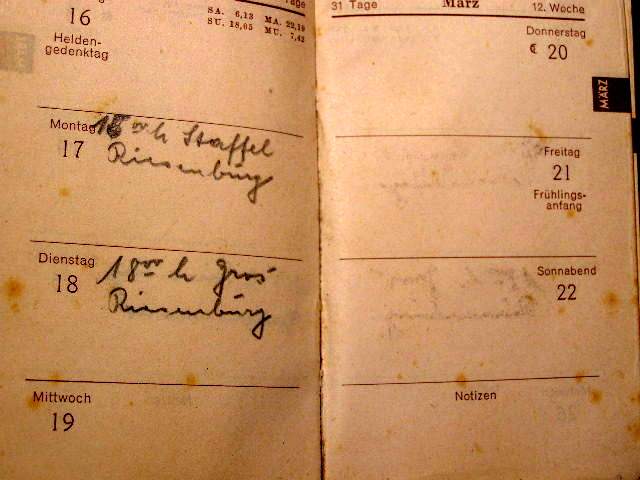 16
Helden-
gedenktag
SA. 6,13 MA. 22,19
SU. 18,05 MU. 7,42
Montag
17
18 00 h Staffel
Riesenburg
Dienstag
18
18 00 h Gros
Riesenburg
Mittwoch
19
31 Tage März 12. Woche
Donnerstag
20
MÄRZ
Freitag
21
Frühlings-
anfang
Sonnabend
22
Notizen